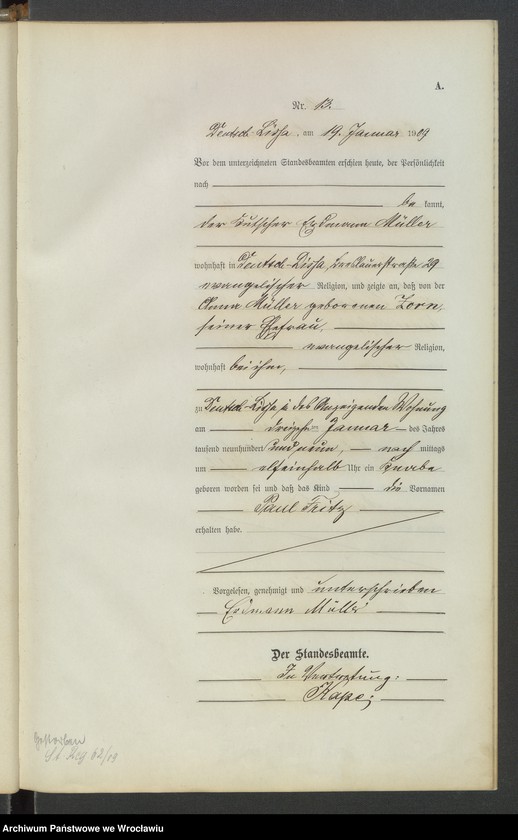 A.
Nr. 13.
Deutsch-Lissa, am 19. Januar 1909
Vor dem unterzeichneten Standesbeamten erschien heute, der Persönlichkeit
nach
be kannt,
der Kutscher Erdmann Müller
wohnhaft in Deutsch-Lissa, Breslauerstraße 29
evangelischer Religion, und zeigte an, daß von der
Anna Müller geborenen Zorn,
seiner Ehefrau,
evangelischer Religion,
wohnhaft bei ihm,
zu Deutsch-Lissa, in des Anzeigenden Wohnung
am dreizehnten Januar des Jahres
tausend neunhundert und neun, nach mittags
um elfeinhalb Uhr ein Knabe
geboren worden sei und daß das Kind die Vornamen
Paul Fritz
erhalten habe.
Vorgelesen, genehmigt und unterschrieben
Erdmann Müller
Der Standesbeamte.
In Vertretung:
Gestorben
St. Reg 62/19
Archiwum Państwowe we Wrocławiu